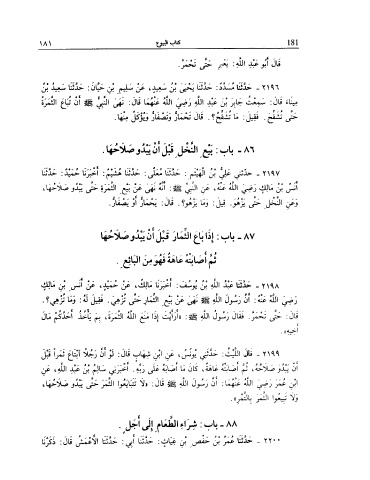 ١٨١ كتاب البيوع 181
قَالَ أَبُو عَبْدِ اللَّهِ: يَعْنِي حَتَّى تَحْمَرَّ.
٢١٩٦ - حَدَّثَنَا مُسَدَّدٌ: حَدَّثَنَا يَحْيَى بْنُ سَعِيدٍ، عَنْ سَلِيمِ بْنِ حَيَّانَ: حَدَّثَنَا سَعِيدُ بْنُ
مِينَا، قَالَ: سَمِعْتُ جَابِرَ بْنَ عَبْدِ اللَّهِ رَضِيَ اللَّهُ عَنْهُمَا قَالَ: نَهَى النَّبِيُّ ﷺ أَنْ تُبَاعَ الثَّمَرَةُ
حَتَّى تُشَقِّحَ. فَقِيلَ: مَا تُشَقِّحُ؟. قَالَ: تَحْمَارُّ وَتَصْفَارُّ وَيُؤْكَلُ مِنْهَا.
٨٦ - باب: بَيْعِ النَّخْلِ قَبْلَ أَنْ يَبْدُوَ صَلَاحُهَا.
٢١٩٧ - حدثني عَلِيُّ بْنُ الْهَيْثَمِ: حَدَّثَنَا مُعَلَّى: حَدَّثَنَا هُشَيْمٌ: أَخْبَرَنَا حُمَيْدٌ: حَدَّثَنَا
أَنَسُ بْنُ مَالِكٍ رَضِيَ اللَّهُ عَنْهُ، عَنِ النَّبِيِّ ﷺ: أَنَّهُ نَهَى عَنْ بَيْعِ الثَّمَرَةِ حَتَّى يَبْدُوَ صَلَاحُهَا،
وَعَنِ النَّخْلِ حَتَّى يَزْهُوَ. قِيلَ: وَمَا يَزْهُو؟. قَالَ: يَحْمَارُّ أَوْ يَصْفَارُّ.
٨٧ - باب: إِذَا بَاعَ الثِّمَارَ قَبْلَ أَنْ يَبْدُوَ صَلَاحُهَا
ثُمَّ أَصَابَتْهُ عَاهَةٌ فَهُوَ مِنَ الْبَائِعِ.
٢١٩٨ - حَدَّثَنَا عَبْدُ اللَّهِ بْنُ يُوسُفَ: أَخْبَرَنَا مَالِكٌ، عَنْ حُمَيْدٍ، عَنْ أَنَسِ بْنِ مَالِكٍ
رَضِيَ اللَّهُ عَنْهُ: أَنَّ رَسُولَ اللَّهِ ﷺ نَهَى عَنْ بَيْعِ الثِّمَارِ حَتَّى تُزْهِيَ. فَقِيلَ لَهُ: وَمَا تُزْهِي؟.
قَالَ: حَتَّى تَحْمَرَّ. فَقَالَ رَسُولُ اللَّهِ ﷺ: «أَرَأَيْتَ إِذَا مَنَعَ اللَّهُ الثَّمَرَةَ، بِمَ يَأْخُذُ أَحَدُكُمْ مَالَ
أَخِيهِ.
٢١٩٩ - قالَ اللَّيْثُ: حَدَّثَنِي يُونُسُ، عَنِ ابْنِ شِهَابٍ قَالَ: لَوْ أَنَّ رَجُلًا ابْتَاعَ ثَمَرًا قَبْلَ
أَنْ يَبْدُوَ صَلَاحُهُ، ثُمَّ أَصَابَتْهُ عَاهَةٌ، كَانَ مَا أَصَابَهُ عَلَى رَبِّهِ. أَخْبَرَنِي سَالِمُ بْنُ عَبْدِ اللَّهِ، عَنِ
ابْنِ عُمَرَ رَضِيَ اللَّهُ عَنْهُمَا: أَنَّ رَسُولَ اللَّهِ ﷺ قَالَ: «لَا تَتَبَايَعُوا الثَّمَرَ حَتَّى يَبْدُوَ صَلَاحُهَا،
وَلَا تَبِيعُوا الثَّمَرَ بِالتَّمْرِ».
٨٨ - باب: شِرَاءِ الطَّعَامِ إِلَى أَجَلٍ.
٢٢٠٠ - حَدَّثَنَا عُمَرُ بْنُ حَفْصِ بْنِ غِيَاثٍ: حَدَّثَنَا أَبِي: حَدَّثَنَا الْأَعْمَشُ قَالَ: ذَكَرْنَا